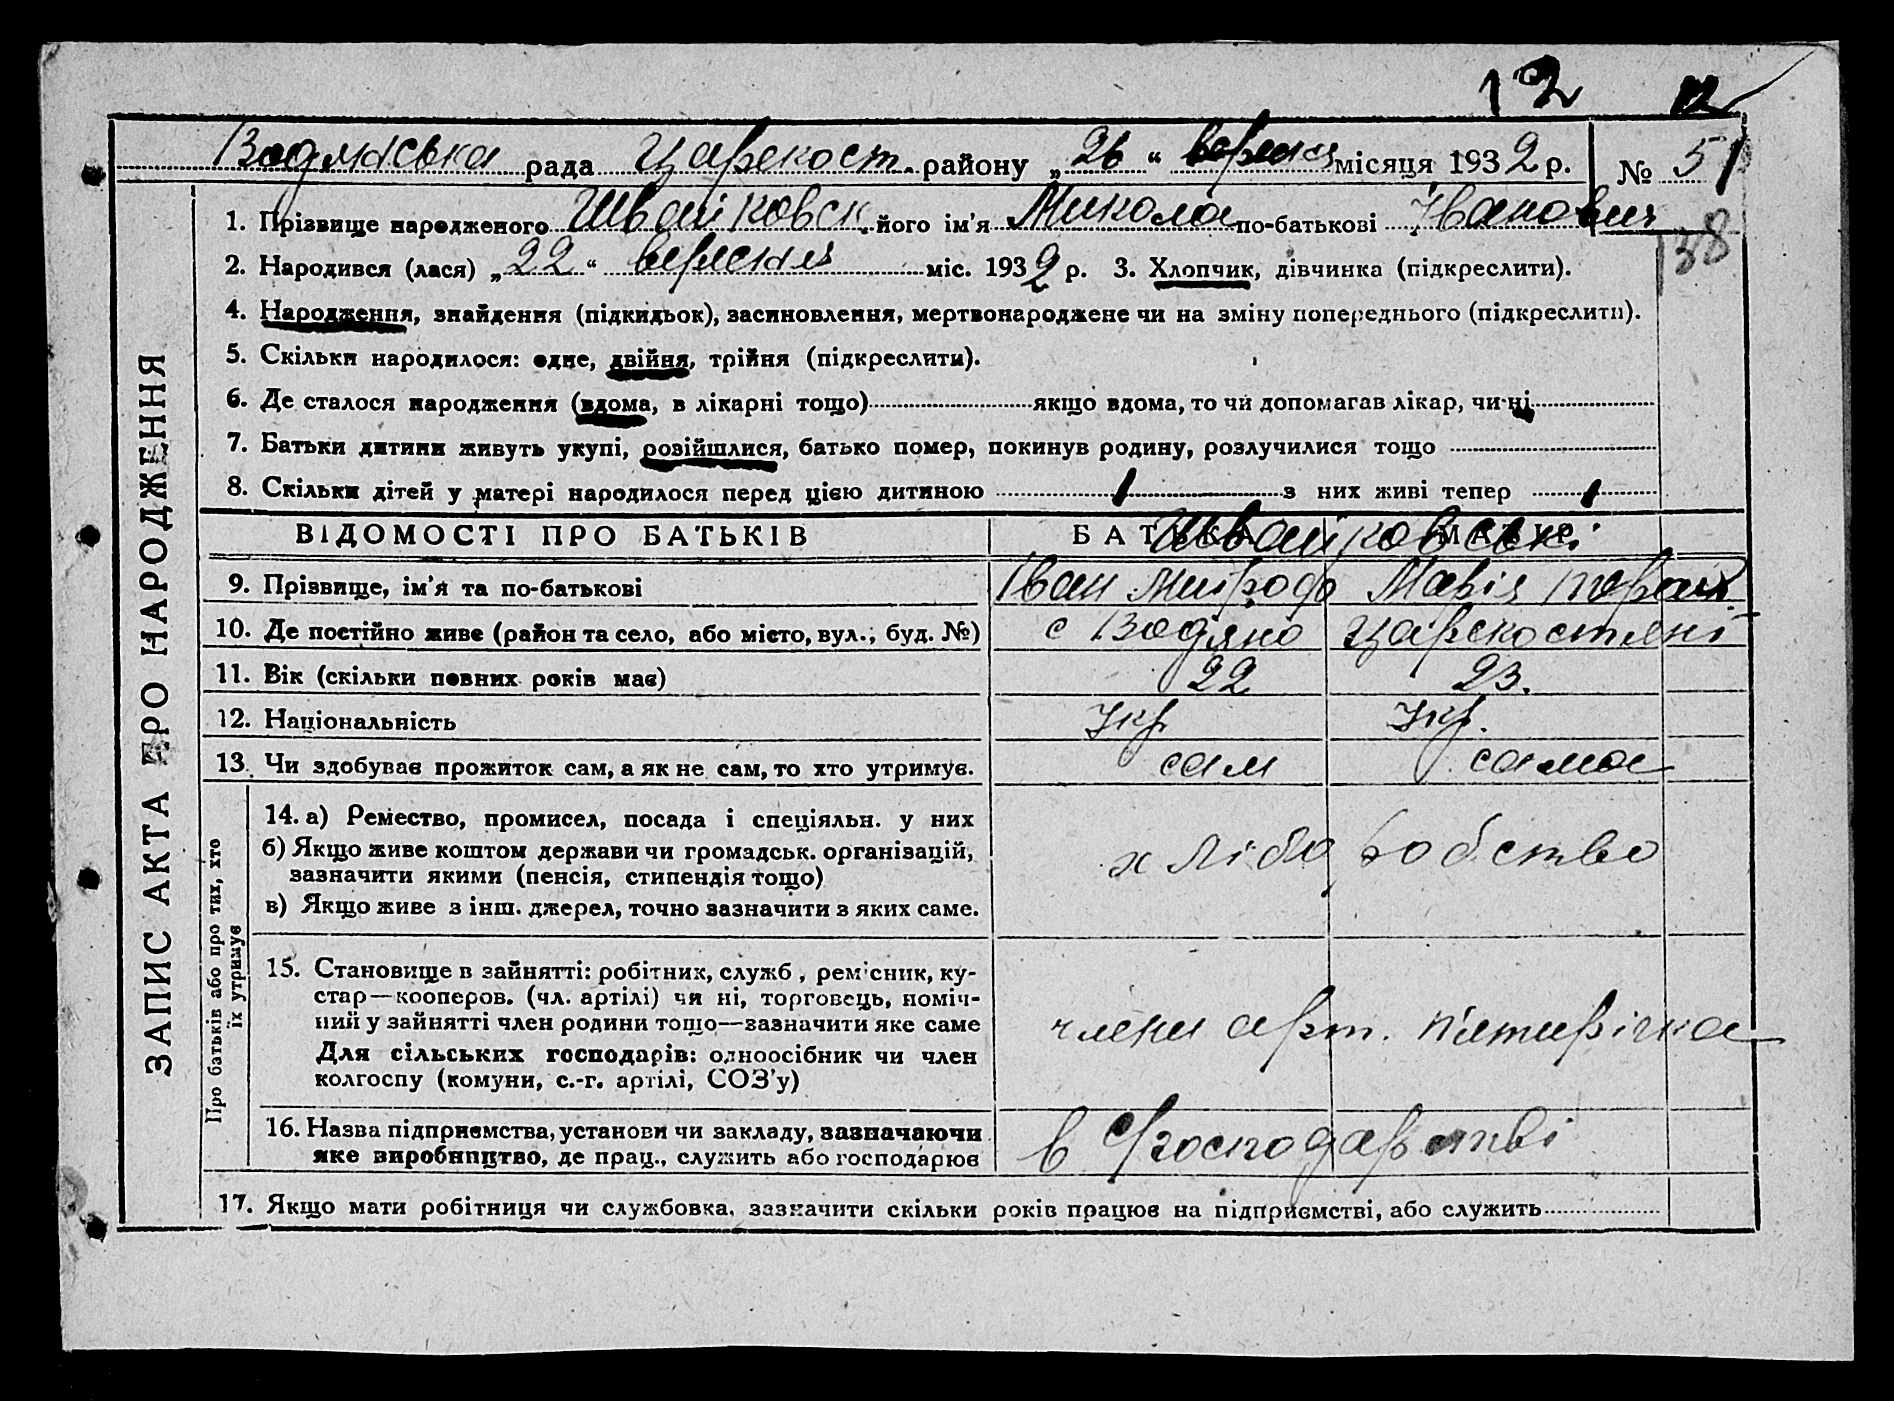 12 12
Водянська рада Царекост. району „26“ вересня місяця 1932 р. № 51
1. Прізвище народженого Швайковськ. його ім'я Микола по-батькові Іванович
138
2. Народився (лася) „22“ вересня міс. 1932 р. 3. Хлопчик, дівчинка (підкреслити).
4. Народження, знайдення (підкидьок), засиновлення, мертвонароджене чи на зміну попереднього (підкреслити).
5. Скільки народилося: одне, двійня, трійня (підкреслити).
6. Де сталося народження (вдома, в лікарні тощо) якщо вдома, то чи допомагав лікар, чи ні
7. Батьки дитини живуть укупі, розійшлися, батько помер, покинув родину, розлучилися тощо
8. Скільки дітей у матері народилося перед цією дитиною 1 з них живі тепер 1
ЗАПИС АКТА ПРО НАРОДЖЕННЯ
ВІДОМОСТІ ПРО БАТЬКІВ БАТЬКА МАТИР
Швайковськ.
9. Прізвище, ім'я та по-батькові Іван Митроф Марія
10. Де постійно живе (район та село, або місто, вул., буд. №) с Водяно Царскостяні
11. Вік (скільки повних років має) 22 23.
12. Національність Укр Укр.
13. Чи здобуває прожиток сам, а як не сам, то хто утримує. сам сама
Про батьків або про тих, хто
їх утримує
14. а) Ремество, промисел, посада і спеціяльн. у них
б) Якщо живе коштом держави чи громадськ. організацій,
зазначити якими (пенсія, стипендія тощо)
хліборобство
в) Якщо живе з інш. джерел, точно зазначити з яких саме.
15. Становище в зайнятті: робітник, служб, рем'сник, ку-
стар—кооперов. (чл. артілі) чи ні, торговець, поміч-
ний у зайнятті член родини тощо—зазначити яке саме
члени арт. Пятирічка
Для сільських господарів: одноосібник чи член
колгоспу (комуни, с.-г. артілі, СОЗ'у)
16. Назва підприємства, установи чи закладу, зазначаючи
яке виробництво, де прац., служить або господарює
в с/господарстві
17. Якщо мати робітниця чи службовка, зазначити скільки років працює на підприємстві, або служить